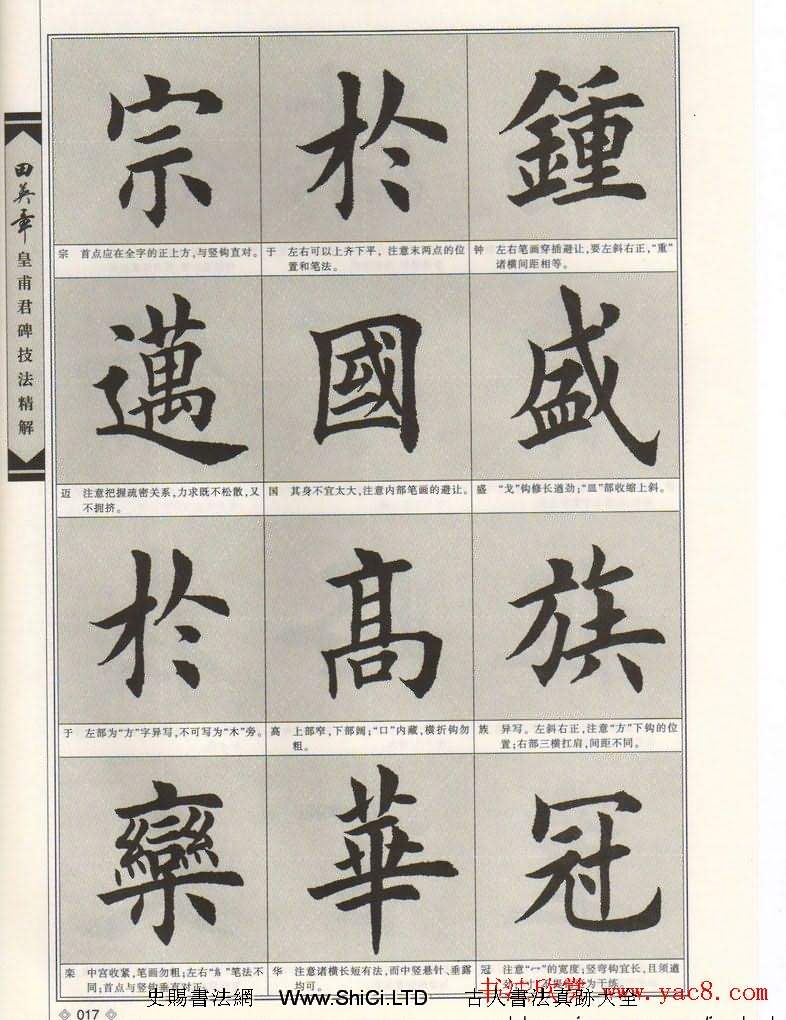 田英章皇甫君碑技法精解
鍾
钟 左右笔画穿插避让,要左斜右正,“重”
诸横间距相等。
盛
盛 “戈”钩修长遒劲;“皿”部收缩上斜。
族
族 异写。左斜右正,注意“方”下钩的位
置;右部三横扛肩,间距不同。
冠
冠 注意“冖”的宽度;竖弯钩宜长,且须遒
为干练。
於
于 左右可以上齐下平,注意末两点的位
置和笔法。
國
国 其身不宜太大,注意内部笔画的避让。
高
高 上部窄,下部阔;“口”内藏,横折钩勿
粗。
華
华 注意诸横长短有法,而中竖悬针、垂露
均可。
宗
宗 首点应在全字的正上方,与竖钩直对。
邁
迈 注意把握疏密关系,力求既不松散,又
不拥挤。
於
于 左部为“方”字异写,不可写为“木”旁。
欒
栾 中宫收紧,笔画勿粗;左右“糹”笔法不
同;首点与竖钩垂直对正。
◇ 017 ◇
史賜書法網 Www.ShiCi.LTD 古人書法真跡大全
书法欣赏 www.yac8.com